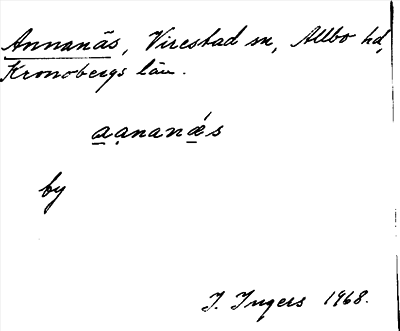 Annanäs, Virestad sn, Allbo hd,
Kronobergs län.
a̲ạnanǽ̲s
by
I. Ingers 1968.